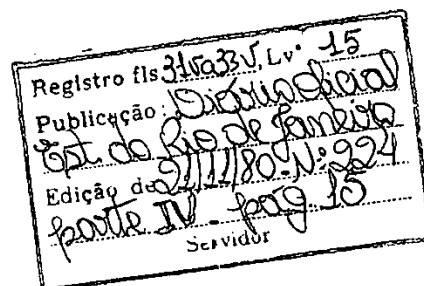 Registro fls 31va33v. Lvº 15
Publicação: Diário Oficial
Est. do Rio de Janeiro
Edição de 21/11/80 - Nº 224
parte IV - pág. 15
Servidor